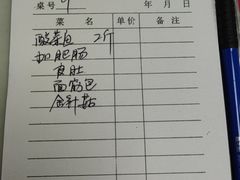 桌号 9 年 月 日
菜名 单价 备注
酸菜鱼 2斤
加肥肠
良肚
面筋包
金针菇